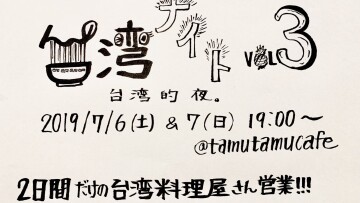 台湾ナイト VOL3
台湾的夜。
2019/7/6(土) & 7(日) 19:00〜
@tamutamucafe
2日間だけの台湾料理屋さん営業!!!